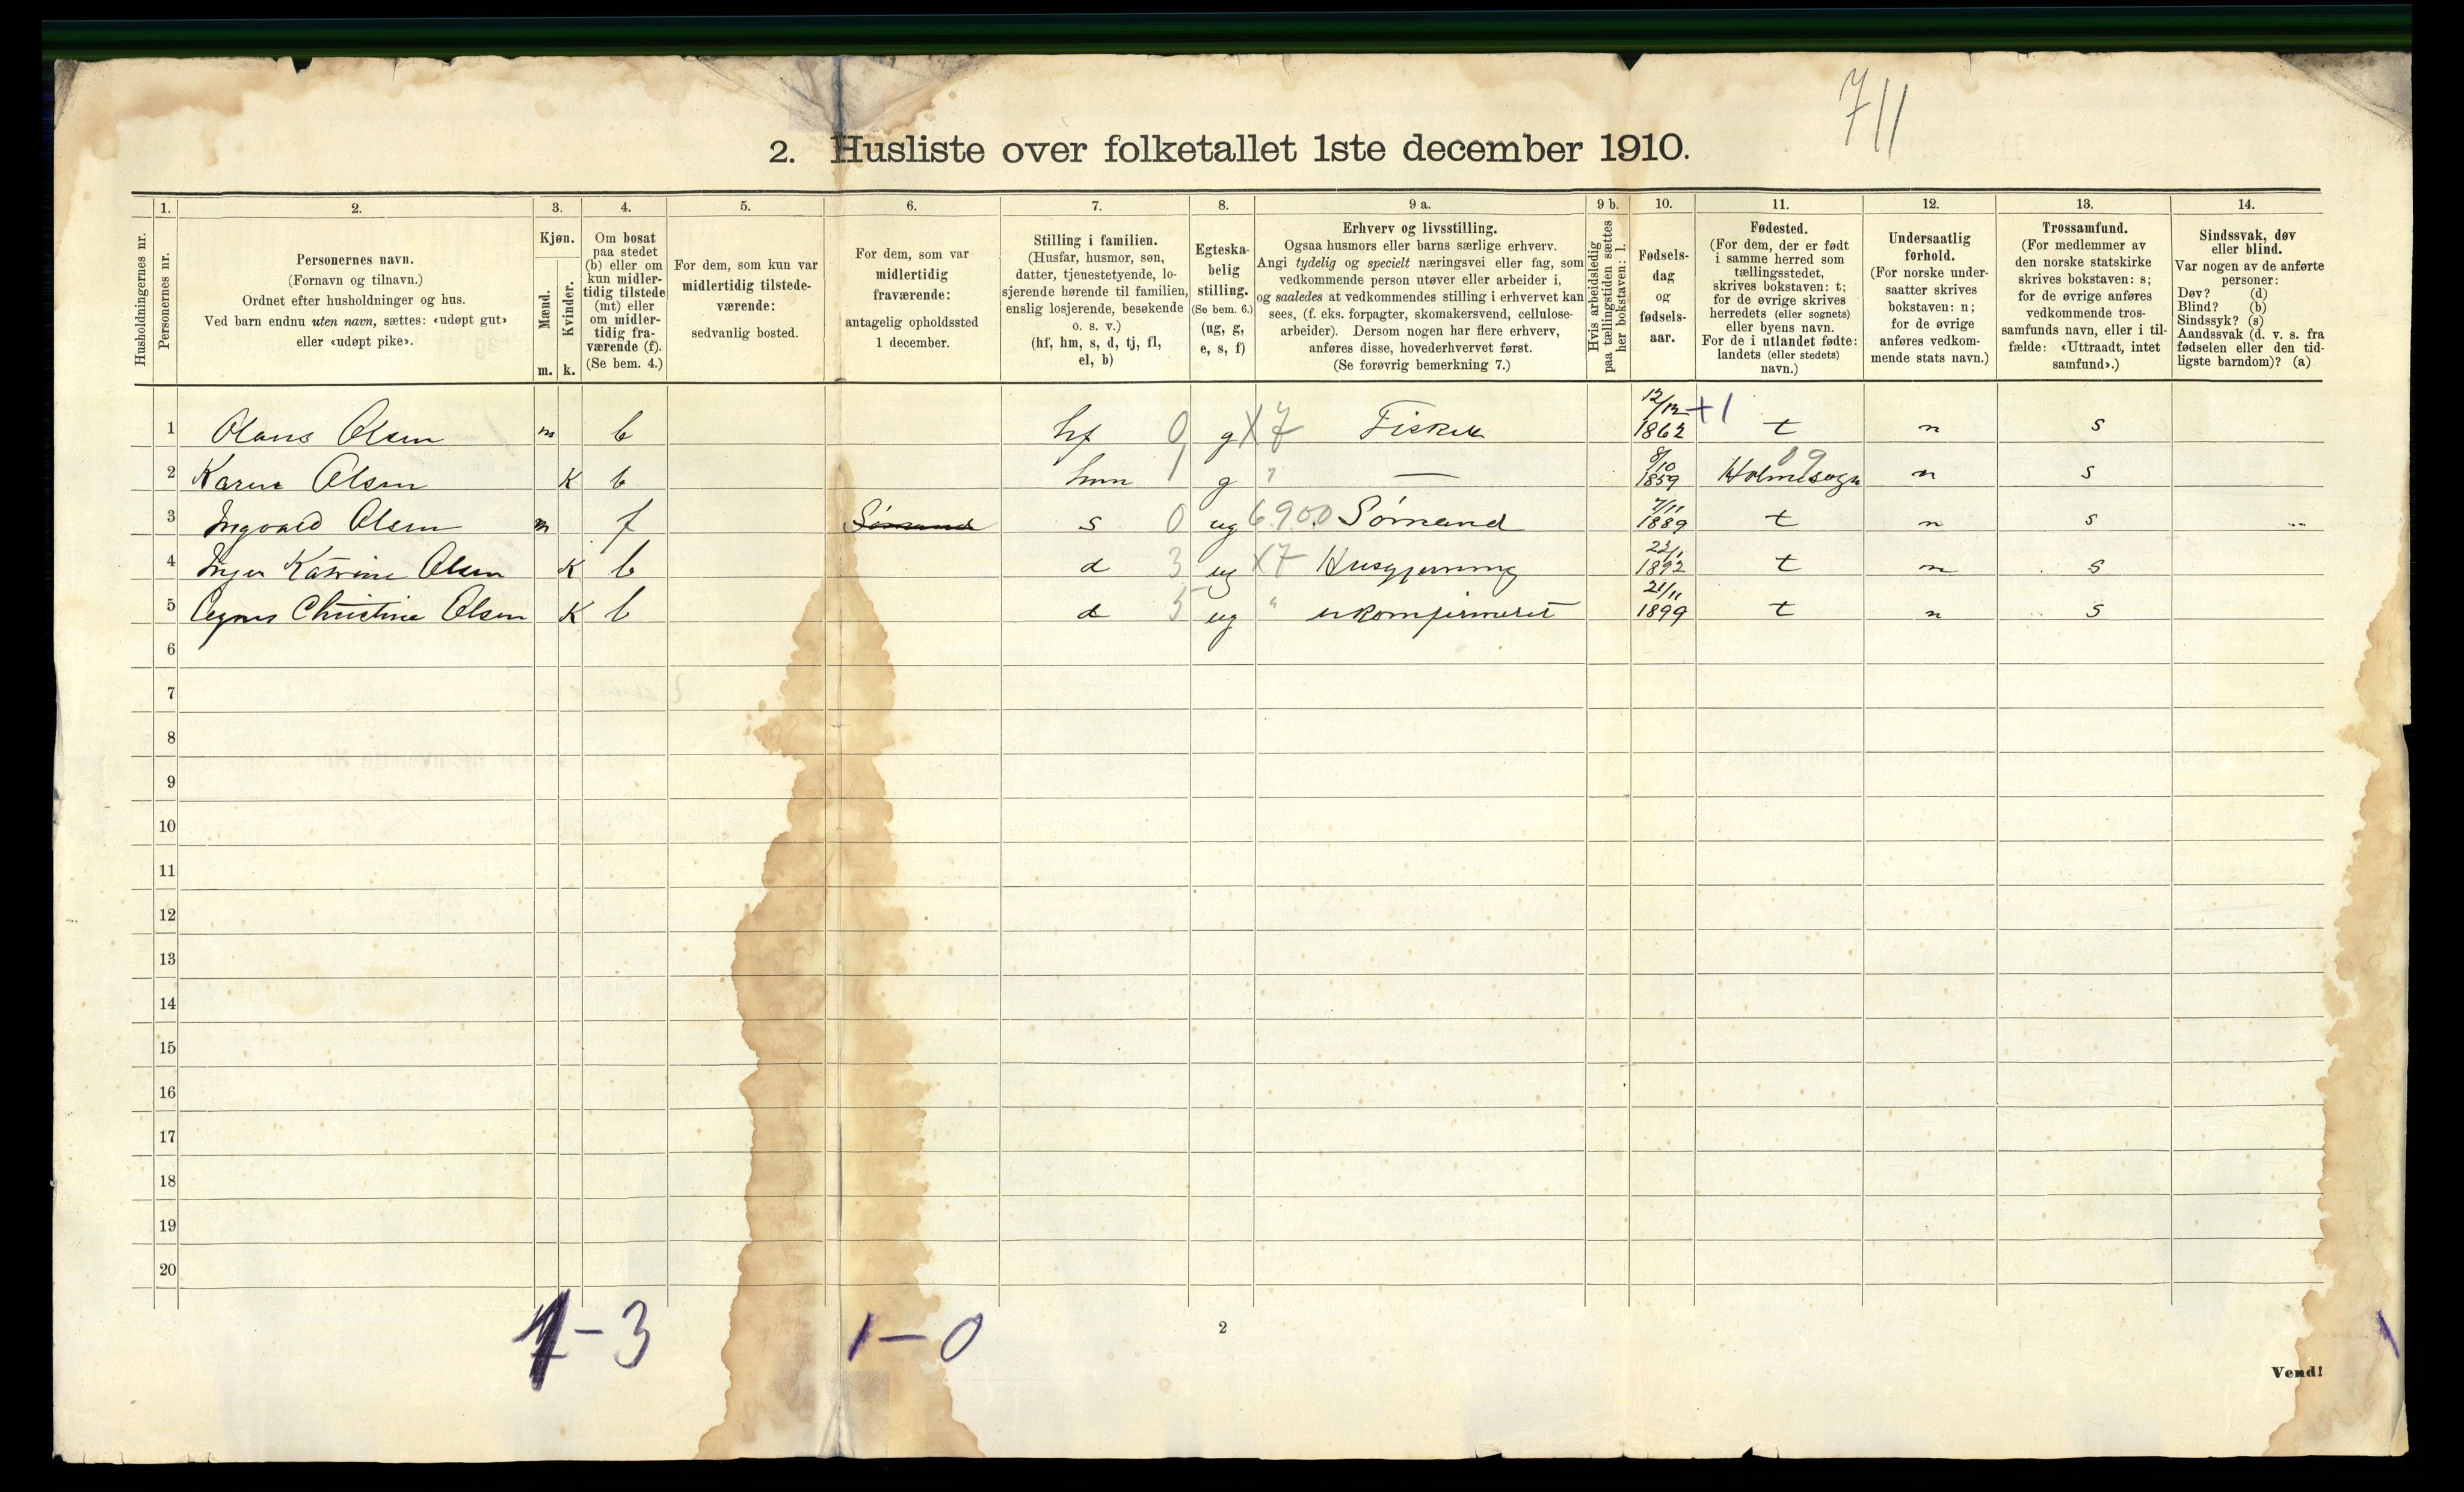 711
2. Husliste over folketallet 1ste december 1910.
Husholdningernes nr.
1.
Personernes nr.
2.
Personernes navn.
(Fornavn og tilnavn.)
Ordnet efter husholdninger og hus.
Ved barn endnu uten navn, sættes: «udøpt gut»
eller «udøpt pike».
3.
Kjøn.
Mænd.
Kvinder.
m. k.
4.
Om bosat
paa stedet
(b) eller om
kun midler-
tidig tilstede
(mt) eller
om midler-
tidig fra-
værende (f).
(Se bem. 4.)
5.
For dem, som kun var
midlertidig tilstede-
værende:
sedvanlig bosted.
6.
For dem, som var
midlertidig
fraværende:
antagelig opholdssted
1 december.
7.
Stilling i familien.
(Husfar, husmor, søn,
datter, tjenestetyende, lo-
sjerende hørende til familien,
enslig losjerende, besøkende
o. s. v.)
(hf, hm, s, d, tj, fl,
el, b)
8.
Egteska-
belig
stilling.
(Se bem. 6.)
(ug, g,
e, s, f)
9 a.
Erhverv og livsstilling.
Ogsaa husmors eller barns særlige erhverv.
Angi tydelig og specielt næringsvei eller fag, som
vedkommende person utøver eller arbeider i,
og saaledes at vedkommendes stilling i erhvervet kan
sees, (f. eks. forpagter, skomakersvend, cellulose-
arbeider). Dersom nogen har flere erhverv,
anføres disse, hovederhvervet først.
(Se forøvrig bemerkning 7.)
9 b.
Hvis arbeidsledig
paa tællingstiden sættes
her bokstaven: l.
10.
Fødsels-
dag
og
fødsels-
aar.
11.
Fødested.
(For dem, der er født
i samme herred som
tællingsstedet,
skrives bokstaven: t;
for de øvrige skrives
herredets (eller sognets)
eller byens navn.
For de i utlandet fødte:
landets (eller stedets)
navn.)
12.
Undersaatlig
forhold.
(For norske under-
saatter skrives
bokstaven: n;
for de øvrige
anføres vedkom-
mende stats navn.)
13.
Trossamfund.
(For medlemmer av
den norske statskirke
skrives bokstaven: s;
for de øvrige anføres
vedkommende tros-
samfunds navn, eller i til-
fælde: «Uttraadt, intet
samfund».)
14.
Sindssvak, døv
eller blind.
Var nogen av de anførte
personer:
Døv? (d)
Blind? (b)
Sindssyk? (s)
Aandssvak (d. v. s. fra
fødselen eller den tid-
ligste barndom)? (a)
1 Olaus Olsen m b hf 0 g X7 Fisker 12/12 +1 1862 t n s
2 Karen Olsen K b hm 1 g " — 8/10 1859 Holmesogn 09 n s
3 Ingvald Olsen m f Sømand s 0 ug 6.900 Sømand 7/11 1889 t n s
4 Inger Katrine Olsen K b d 3 ug X7 Husgjerning 23/1 1892 t n s
5 Agnes Christine Olsen K b d 5 ug " ukonfirmeret 21/11 1899 t n s
6
7
8
9
10
11
12
13
14
15
16
17
18
19
20
1-3 1-0
2
Vend!